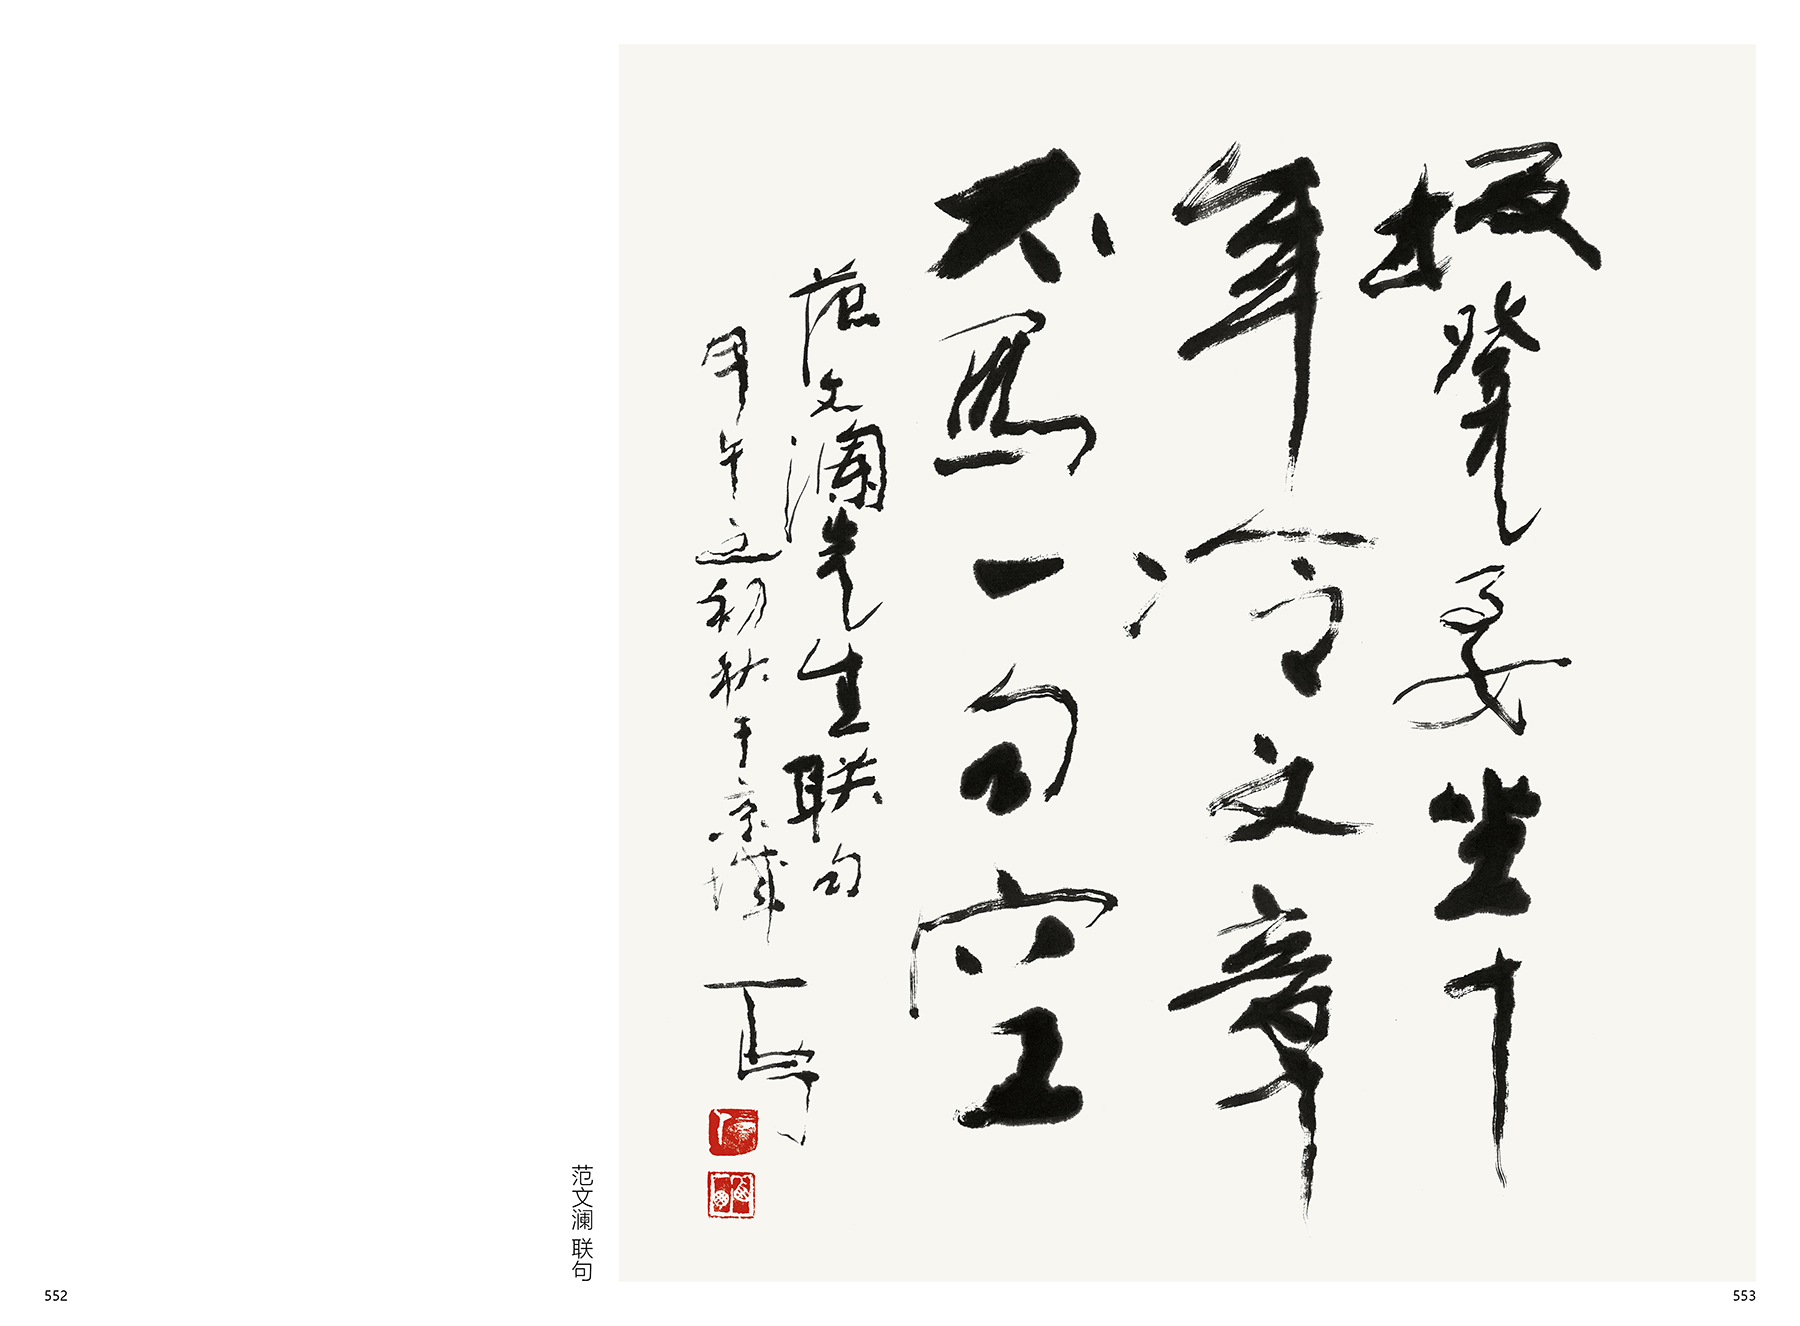 板凳要坐十
年冷文章
不寫一句空
范文瀾先生联句
甲午之初秋于京城
范文澜 联句
552
553